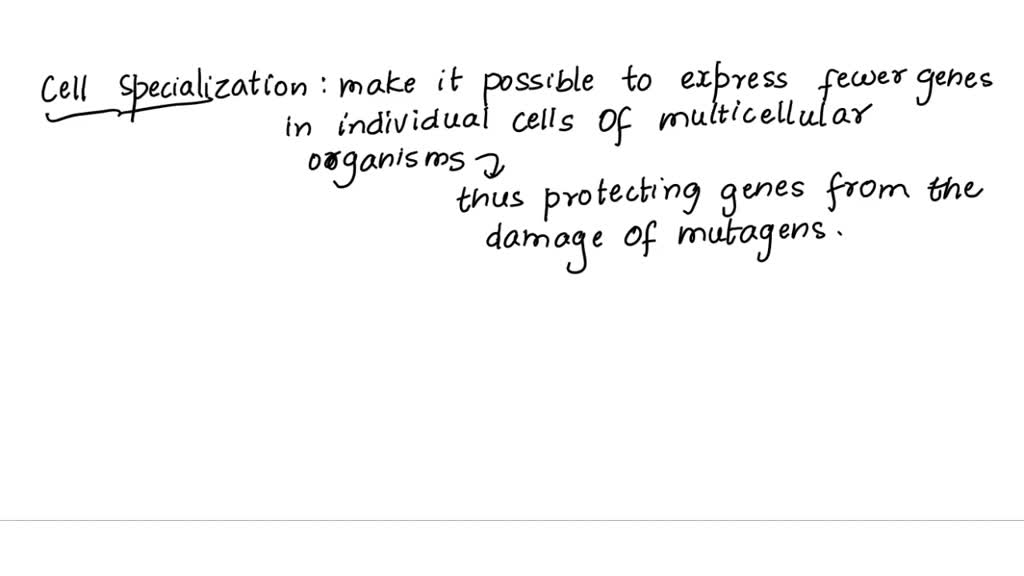 Cell Specialization : make it possible to express fewer genes
in individual cells of multicellular
organisms
thus protecting genes from the
damage of mutagens.